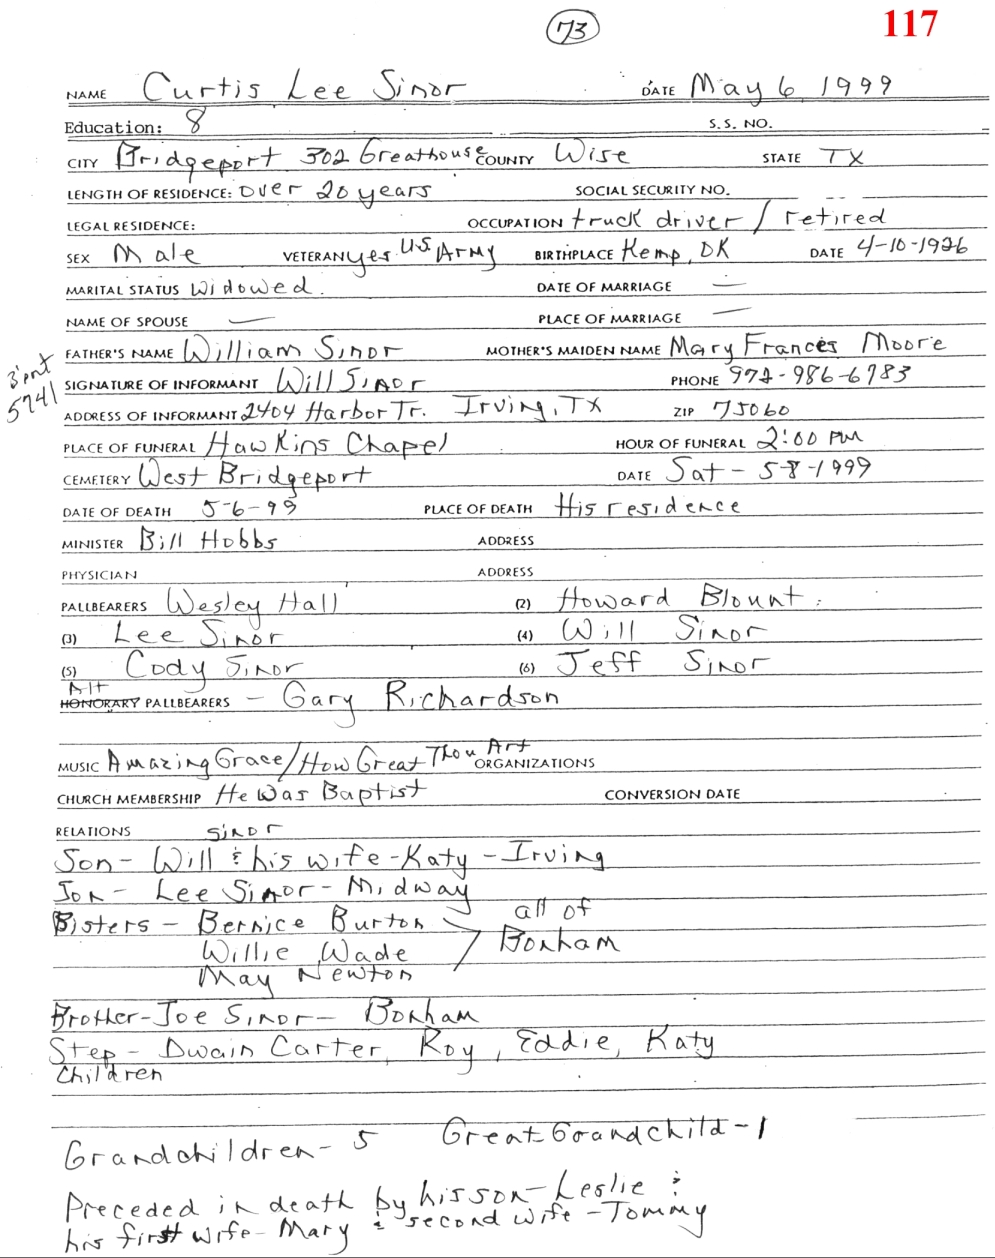 73 117
NAME Curtis Lee Sinor DATE May 6, 1999
Education: 8 S.S. NO.
CITY Bridgeport 302 Greathouse COUNTY Wise STATE TX
LENGTH OF RESIDENCE: over 20 years SOCIAL SECURITY NO.
LEGAL RESIDENCE: OCCUPATION truck driver / retired
SEX Male VETERAN yes U.S. Army BIRTHPLACE Kemp, OK DATE 4-10-1926
MARITAL STATUS Widowed. DATE OF MARRIAGE —
NAME OF SPOUSE — PLACE OF MARRIAGE —
FATHER'S NAME William Sinor MOTHER'S MAIDEN NAME Mary Frances Moore
5741
SIGNATURE OF INFORMANT Will Sinor PHONE 972-986-6783
ADDRESS OF INFORMANT 2404 Harbor Tr. Irving, TX ZIP 75060
PLACE OF FUNERAL Hawkins Chapel HOUR OF FUNERAL 2:00 PM
CEMETERY West Bridgeport DATE Sat - 5-8-1999
DATE OF DEATH 5-6-99 PLACE OF DEATH His residence
MINISTER Bill Hobbs ADDRESS
PHYSICIAN ADDRESS
PALLBEARERS Wesley Hall (2) Howard Blount.
(3) Lee Sinor (4) Will Sinor
(5) Cody Sinor (6) Jeff Sinor
Alt
HONORARY PALLBEARERS - Gary Richardson
MUSIC Amazing Grace/How Great Thou Art ORGANIZATIONS
CHURCH MEMBERSHIP He Was Baptist CONVERSION DATE
RELATIONS Sinor
Son- Will & his wife-Katy - Irving
Son- Lee Sinor - Midway
Sisters - Bernice Burton all of
Willie Wade Bonham
May Newton
Brother-Joe Sinor- Bonham
Step - Dwain Carter, Roy, Eddie, Katy
Children
Grandchildren- 5 Great-Grandchild-1
Preceded in death by his son-Leslie &
his first wife-Mary & second wife-Tommy